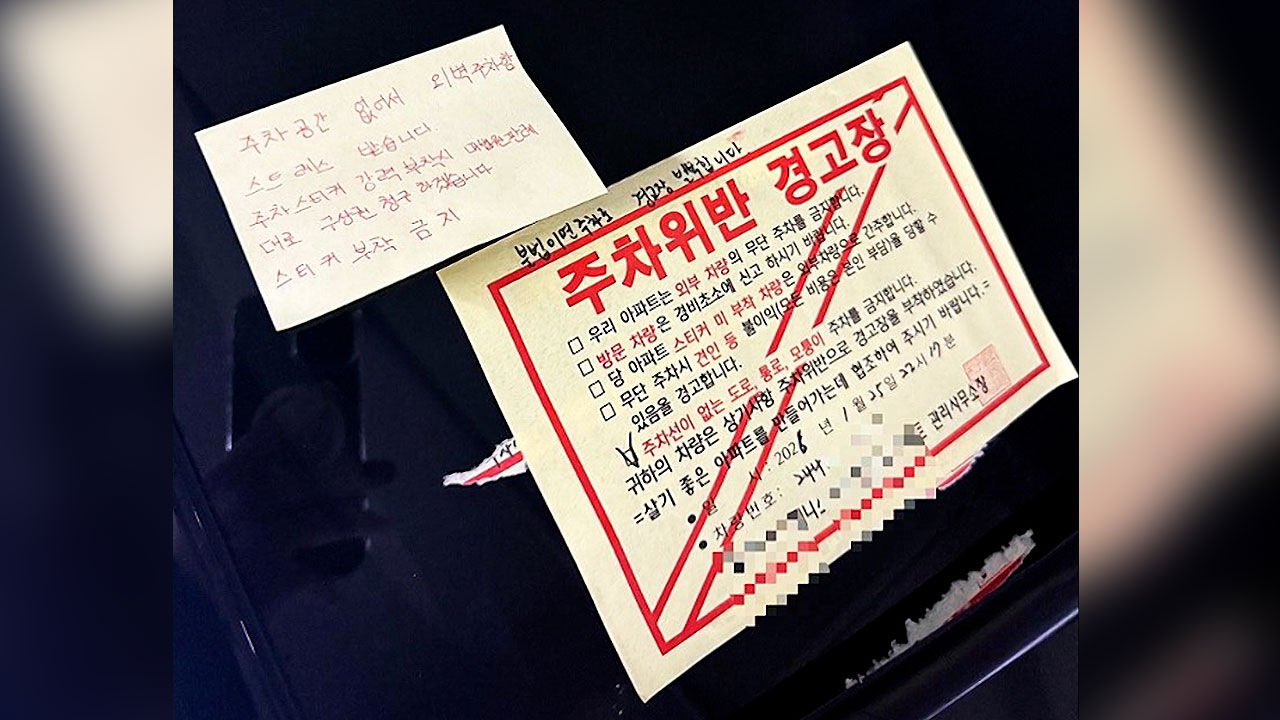 주차 공간 없어서 외벽주차함
스트레스 받습니다.
주차스티커 강력 부착시 대법원판례
대로 구상권 청구 하겠습니다
스티커 부착 금지
불법이면주차로 경고장 발부합니다
주차위반 경고장
□ 우리 아파트는 외부 차량의 무단 주차를 금지합니다.
□ 방문 차량은 경비초소에 신고 하시기 바랍니다.
□ 당 아파트 스티커 미 부착 차량은 외부차량으로 간주합니다.
□ 무단 주차시 견인 등 불이익(모든 비용은 본인 부담)을 당할 수
있음을 경고합니다.
□ 주차선이 없는 도로, 통로, 모퉁이 주차를 금지합니다.
귀하의 차량은 상기사항 주차위반으로 경고장을 부착하였습니다.
=살기 좋은 아파트를 만들어가는데 협조하여 주시기 바랍니다.=
● 일 시 : 202 년 1월 25일 22시 17분
● 차량번호 :
관리사무소장